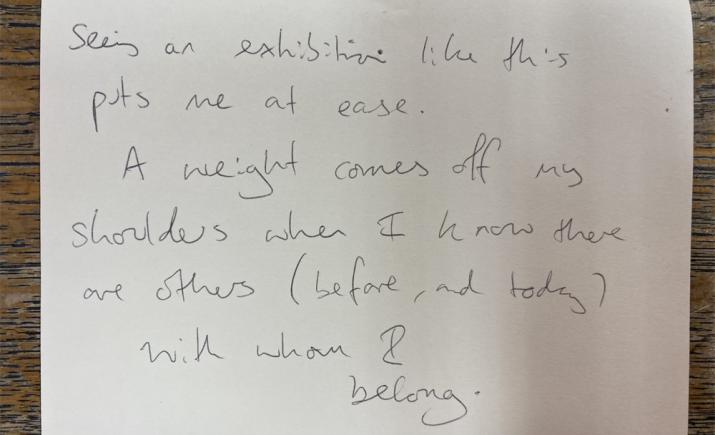 Seeing an exhibition like this
puts me at ease.
A weight comes off my
shoulders when I know there
are others (before, and today)
with whom I
belong.